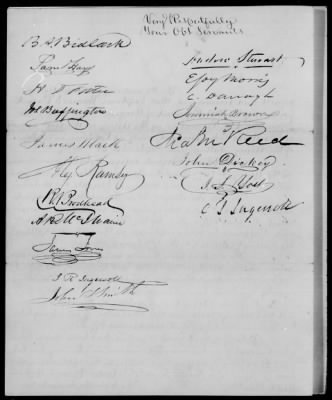 Very Respectfully
Your Obt Servants
B. A. Bidlack
Saml Hays
H. D. Foster
Jos Buffington
James Black
Alex Ramsey
R. Brodhead
A. R. McIlvaine
James Irvin
J. R. Ingersoll
John Smith
Andrew Stewart
E Joy Morris
C. Darragh
Jeremiah Brown
Chas M Reed
John Dickey
J. Yost
C J Ingersoll